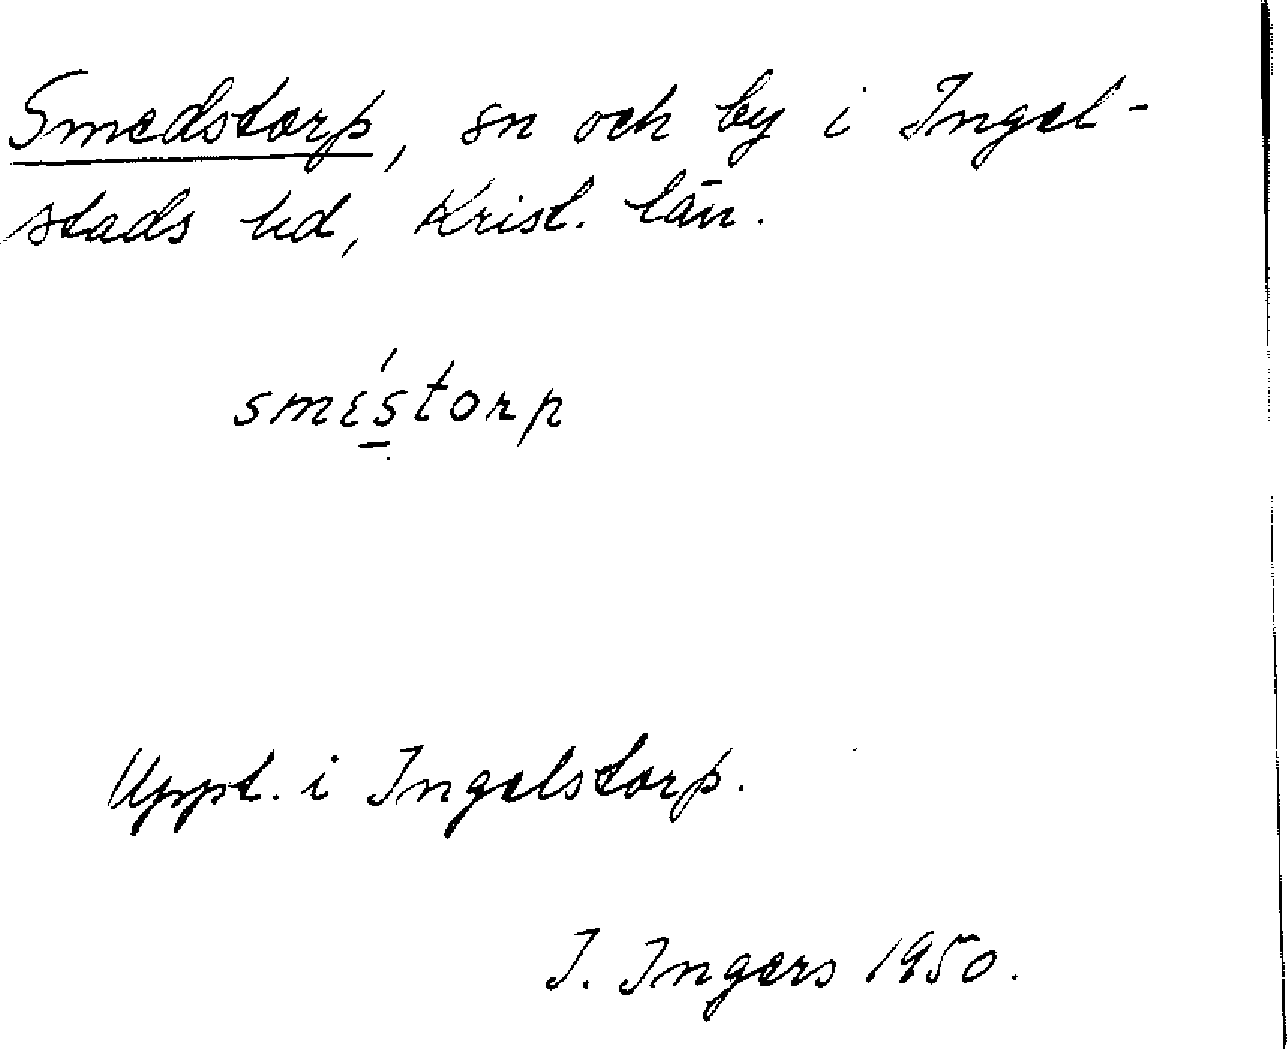 Smedstorp, sn och by i Ingel-
stads hd, Krist. län.
smɛ́s̲torp
Uppt. i Ingelstorp.
I. Ingers 1950.